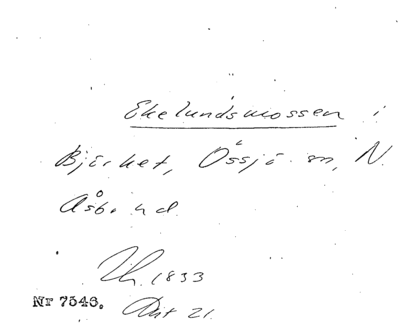 Ekelundsmossen i
Björket, Össjö sn, N.
Åsbo hd.
Th. 1833
Nr 7546. Akt 21.